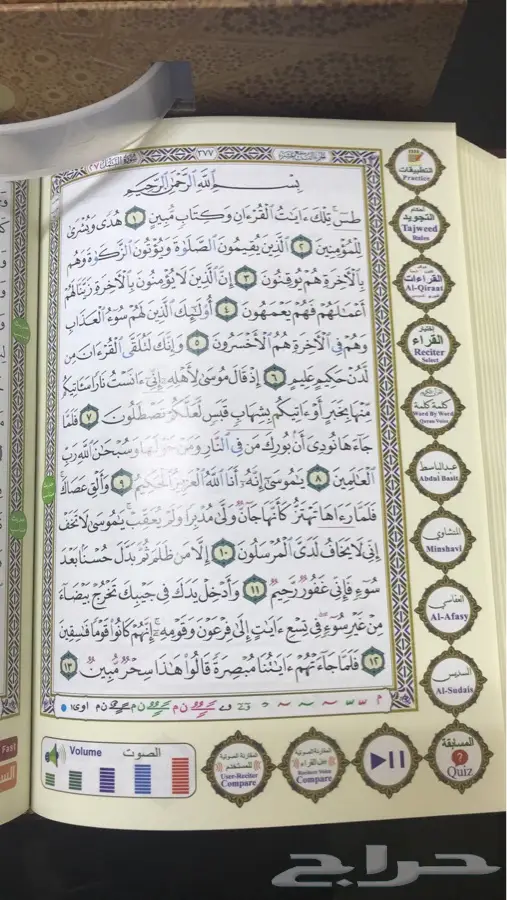 ٣٧٧
بِسْمِ اللَّهِ الرَّحْمَٰنِ الرَّحِيمِ
طسٓ تِلْكَ ءَايَٰتُ ٱلْقُرْءَانِ وَكِتَابٍ مُّبِينٍ ١ هُدًى وَبُشْرَىٰ
لِلْمُؤْمِنِينَ ٢ ٱلَّذِينَ يُقِيمُونَ ٱلصَّلَوٰةَ وَيُؤْتُونَ ٱلزَّكَوٰةَ وَهُم
بِٱلْءَاخِرَةِ هُمْ يُوقِنُونَ ٣ إِنَّ ٱلَّذِينَ لَا يُؤْمِنُونَ بِٱلْءَاخِرَةِ زَيَّنَّا لَهُمْ
أَعْمَٰلَهُمْ فَهُمْ يَعْمَهُونَ ٤ أُو۟لَٰٓئِكَ ٱلَّذِينَ لَهُمْ سُوٓءُ ٱلْعَذَابِ
وَهُمْ فِى ٱلْءَاخِرَةِ هُمُ ٱلْأَخْسَرُونَ ٥ وَإِنَّكَ لَتُلَقَّى ٱلْقُرْءَانَ مِن
لَّدُنْ حَكِيمٍ عَلِيمٍ ٦ إِذْ قَالَ مُوسَىٰ لِأَهْلِهِۦٓ إِنِّىٓ ءَانَسْتُ نَارًا سَـَٔاتِيكُم
مِّنْهَا بِخَبَرٍ أَوْ ءَاتِيكُم بِشِهَابٍ قَبَسٍ لَّعَلَّكُمْ تَصْطَلُونَ ٧ فَلَمَّا
جَآءَهَا نُودِىَ أَنۢ بُورِكَ مَن فِى ٱلنَّارِ وَمَنْ حَوْلَهَا وَسُبْحَٰنَ ٱللَّهِ رَبِّ
ٱلْعَٰلَمِينَ ٨ يَٰمُوسَىٰٓ إِنَّهُۥٓ أَنَا ٱللَّهُ ٱلْعَزِيزُ ٱلْحَكِيمُ ٩ وَأَلْقِ عَصَاكَ
فَلَمَّا رَءَاهَا تَهْتَزُّ كَأَنَّهَا جَآنٌّ وَلَّىٰ مُدْبِرًا وَلَمْ يُعَقِّبْ يَٰمُوسَىٰ لَا تَخَفْ
إِنِّى لَا يَخَافُ لَدَىَّ ٱلْمُرْسَلُونَ ١٠ إِلَّا مَن ظَلَمَ ثُمَّ بَدَّلَ حُسْنًۢا بَعْدَ
سُوٓءٍ فَإِنِّى غَفُورٌ رَّحِيمٌ ١١ وَأَدْخِلْ يَدَكَ فِى جَيْبِكَ تَخْرُجْ بَيْضَآءَ
مِنْ غَيْرِ سُوٓءٍ فِى تِسْعِ ءَايَٰتٍ إِلَىٰ فِرْعَوْنَ وَقَوْمِهِۦٓ إِنَّهُمْ كَانُوا۟ قَوْمًا فَٰسِقِينَ
١٢ فَلَمَّا جَآءَتْهُمْ ءَايَٰتُنَا مُبْصِرَةً قَالُوا۟ هَٰذَا سِحْرٌ مُّبِينٌ ١٣
التطبيقات
Practice
أحكام
التجويد
Tajweed
Rules
القراءات
Al-Qiraat
إختيار
القراء
Reciter
Select
كلمة كلمة
Word By Word
Quran Voice
عبدالباسط
Abdul Basit
المنشاوي
Minshavi
العفاسي
Al-Afasy
السديس
Al-Sudais
المسابقة
?
Quiz
المقارنة الصوتية
للمستخدم
User-Reciter
Compare
المقارنة الصوتية
Compare
Volume
الصوت
Fast
حراج